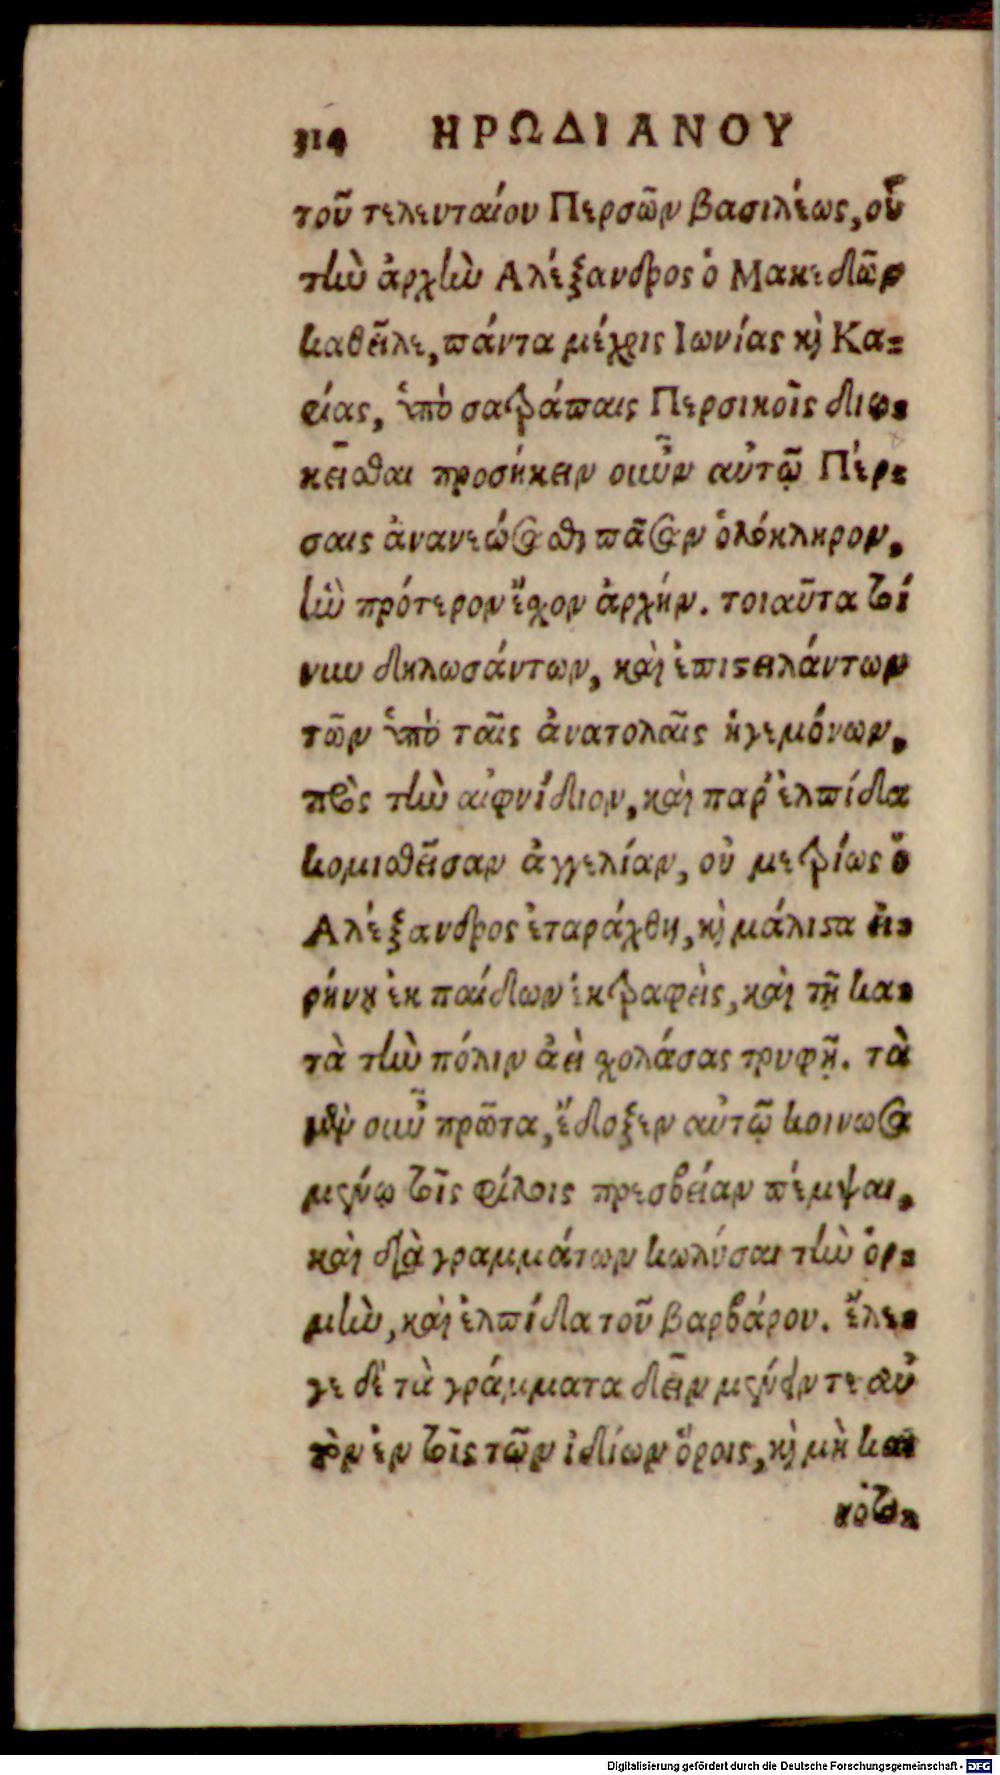 314 ΗΡΩΔΙΑΝΟΥ
τοῦ τελευταίου Περσῶν βασιλέως, οὗ
τὴν ἀρχὴν Αλέξανδρος ὁ Μακεδὼν
καθεῖλε, πάντα μέχρις Ιωνίας καὶ Κα-
ρίας, ὑπὸ σατράπαις Περσικοῖς διῳ-
κεῖσθαι προσήκειν οὖν αὐτῷ Πέρ-
σαις ἀνανεώσασθαι πᾶσαν ὁλόκληρον,
ἣν πρότερον ἔχον ἀρχήν. τοιαῦτα τοί
νυν δηλωσάντων, καὶ ἐπιστειλάντων
τῶν ὑπὸ ταῖς ἀνατολαῖς ἡγεμόνων,
πρὸς τὴν αἰφνίδιον, καὶ παρ' ἐλπίδα
κομισθεῖσαν ἀγγελίαν, οὐ μετρίως ὁ
Αλέξανδρος ἐταράχθη, καὶ μάλιστα εἰ-
ρήνῃ ἐκ παίδων ἐκτραφεὶς, καὶ τῇ κα-
τὰ τὴν πόλιν ἀεὶ σχολάσας τρυφῇ. τὰ
μὲν οὖν πρῶτα, ἔδοξεν αὐτῷ κοινωσα
μένῳ τοῖς φίλοις πρεσβείαν πέμψαι,
καὶ διὰ γραμμάτων κωλύσαι τὴν ὁρ-
μὴν, καὶ ἐλπίδα τοῦ βαρβάρου. ἔλε-
γε δὲ τὰ γράμματα δεῖν μένειν τε αὐ
τὸν ἐν τοῖς τῶν ἰδίων ὅροις, καὶ μὴ και
νοτο-
Digitalisierung gefördert durch die Deutsche Forschungsgemeinschaft - DFG